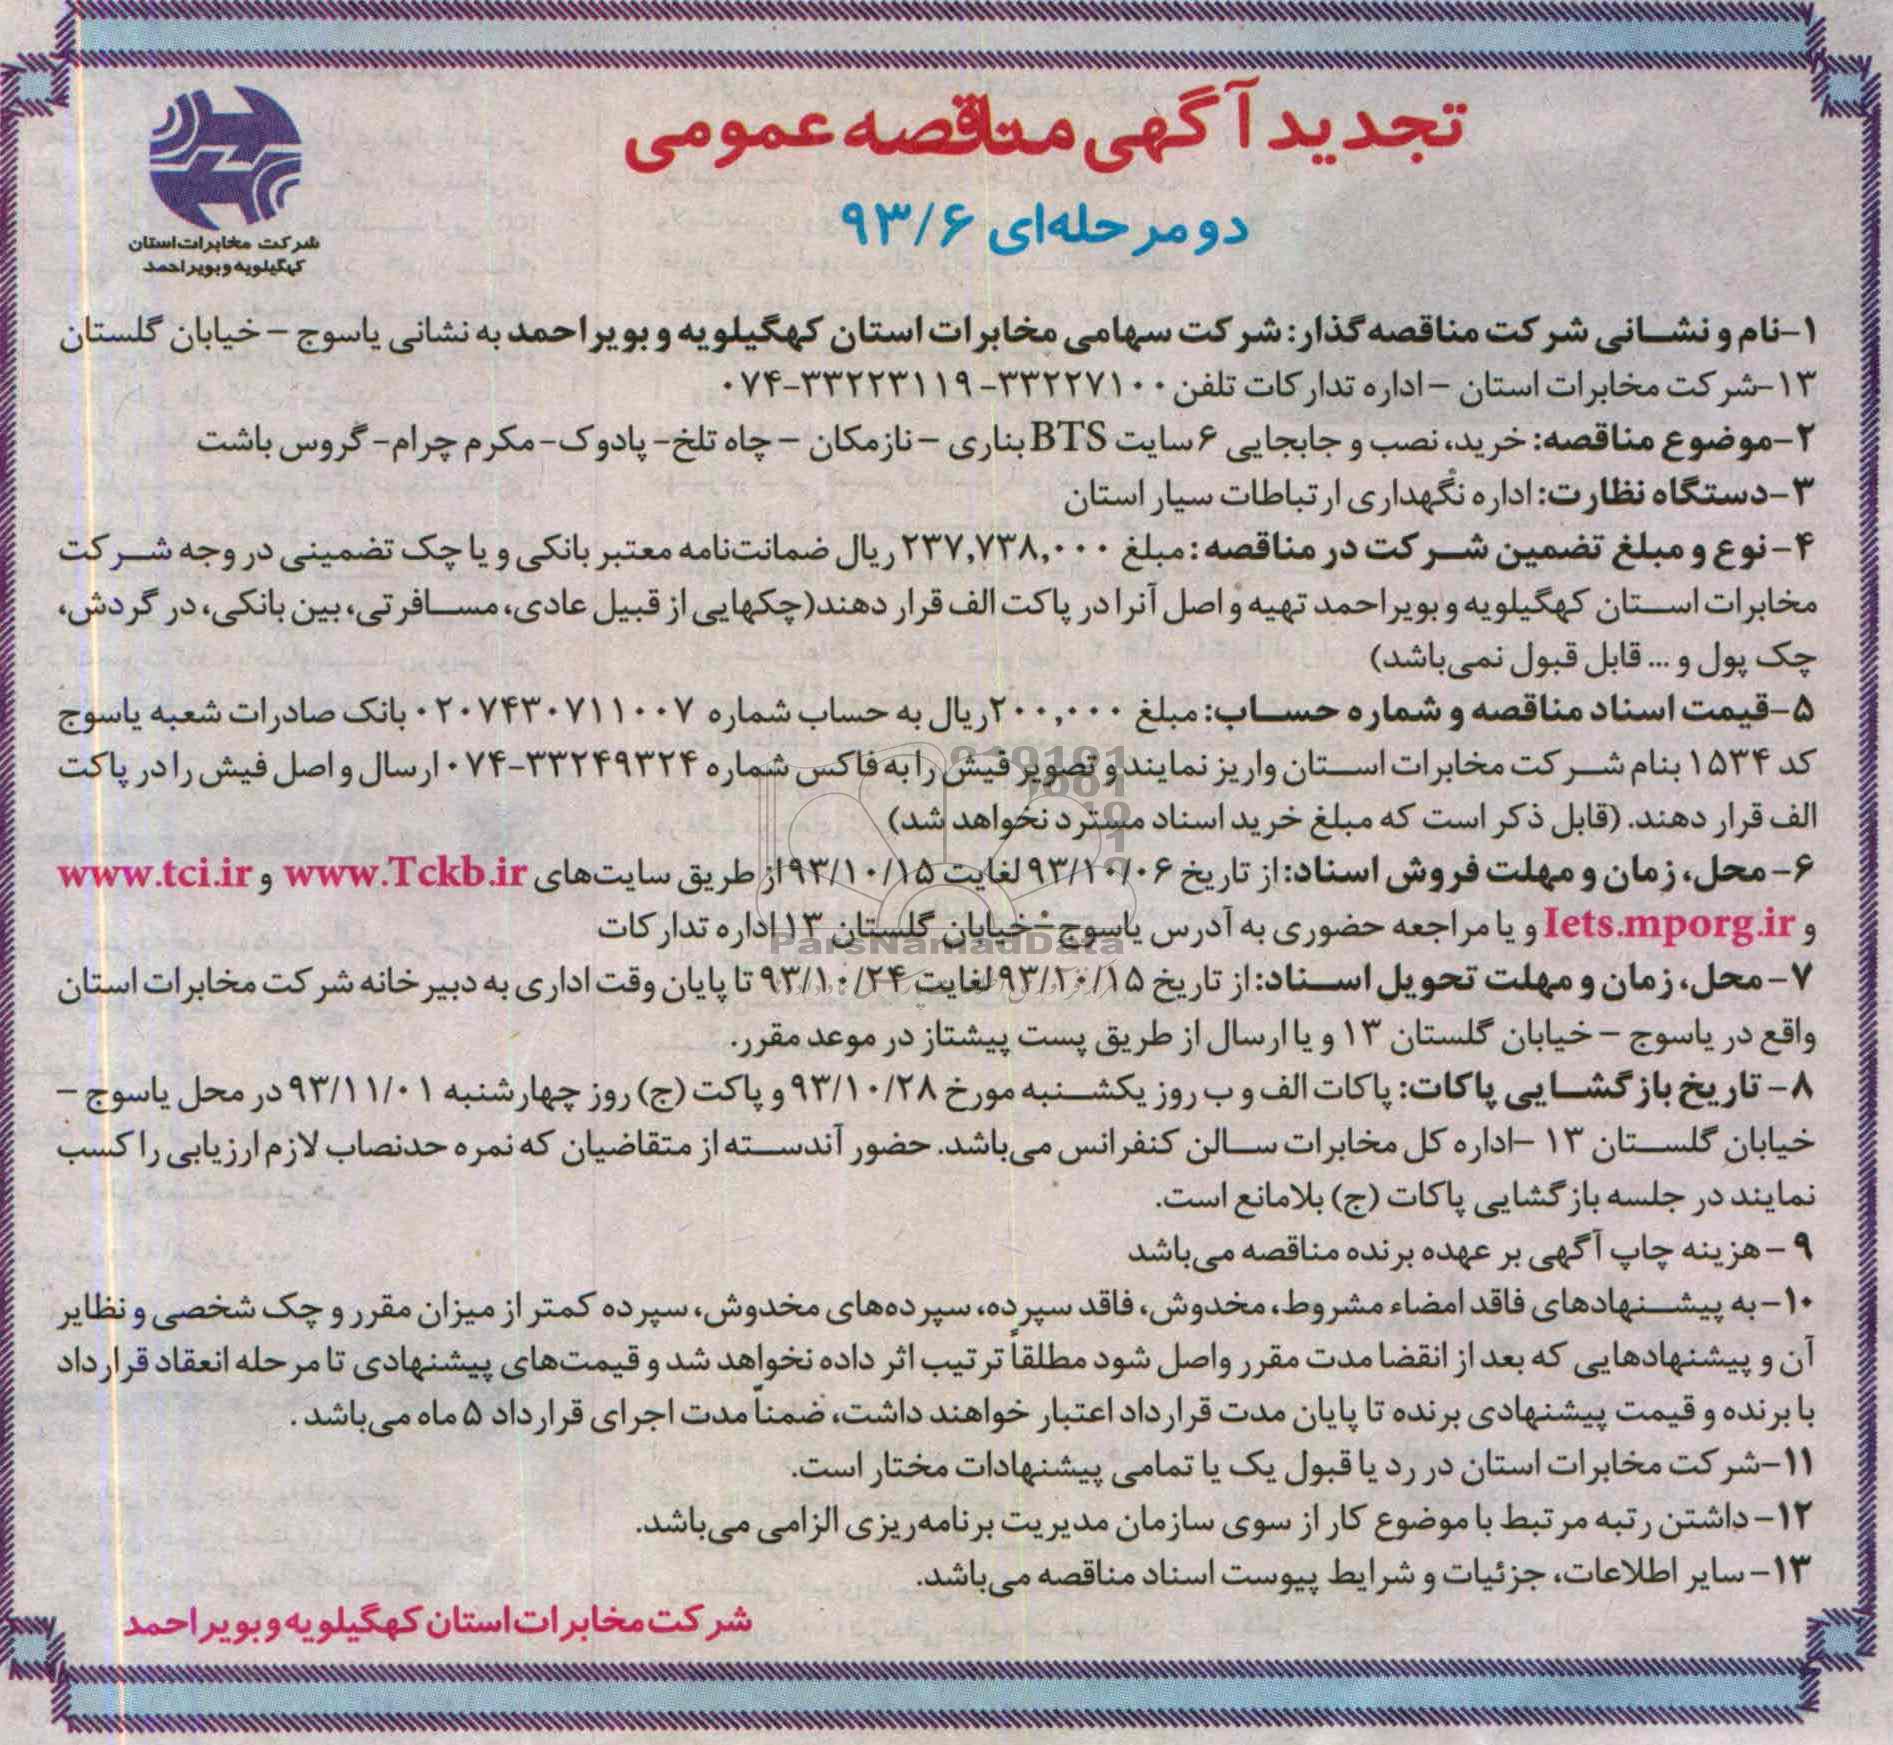 تجدید آگهی مناقصه عمومی
دو مرحله‌ای ۹۳/۶
شرکت مخابرات استان
کهگیلویه و بویراحمد
۱-نام و نشانی شرکت مناقصه گذار: شرکت سهامی مخابرات استان کهگیلویه و بویراحمد به نشانی یاسوج – خیابان گلستان
۱۳-شرکت مخابرات استان –اداره تدارکات تلفن ۳۳۲۲۷۱۰۰- ۳۳۲۲۳۱۱۹-۰۷۴
۲-موضوع مناقصه: خرید، نصب و جابجایی ۶ سایت BTS بناری –نازمکان – چاه تلخ- پادوک- مکرم چرام- گروس باشت
۳-دستگاه نظارت: اداره نگهداری ارتباطات سیار استان
۴- نوع و مبلغ تضمین شرکت در مناقصه: مبلغ ۲۳۷,۷۳۸,۰۰۰ ریال ضمانت‌نامه معتبر بانکی و یا چک تضمینی در وجه شرکت
مخابرات استان کهگیلویه و بویراحمد تهیه و اصل آنرا در پاکت الف قرار دهند(چکهایی از قبیل عادی، مسافرتی، بین بانکی، در گردش،
چک پول و ... قابل قبول نمی‌باشد)
۵-قیمت اسناد مناقصه و شماره حساب: مبلغ ۲۰۰,۰۰۰ریال به حساب شماره ۰۲۰۷۴۳۰۷۱۱۰۰۷ بانک صادرات شعبه یاسوج
کد ۱۵۳۴ بنام شرکت مخابرات استان واریز نمایند و تصویر فیش را به فاکس شماره ۳۳۲۴۹۳۲۴-۰۷۴ ارسال و اصل فیش را در پاکت
الف قرار دهند. (قابل ذکر است که مبلغ خرید اسناد مسترد نخواهد شد)
۶- محل، زمان و مهلت فروش اسناد: از تاریخ ۹۳/۱۰/۰۶ لغایت ۹۳/۱۰/۱۵ از طریق سایت‌های www.Tckb.ir و www.tci.ir
و Iets.mporg.ir و یا مراجعه حضوری به آدرس یاسوج-خیابان گلستان ۱۳ اداره تدارکات
ParsNamadData
۷- محل، زمان و مهلت تحویل اسناد: از تاریخ ۹۳/۱۰/۱۵ لغایت ۹۳/۱۰/۲۴ تا پایان وقت اداری به دبیرخانه شرکت مخابرات استان
واقع در یاسوج – خیابان گلستان ۱۳ و یا ارسال از طریق پست پیشتاز در موعد مقرر.
۸- تاریخ بازگشایی پاکات: پاکات الف و ب روز یکشنبه مورخ ۹۳/۱۰/۲۸ و پاکت (ج) روز چهارشنبه ۹۳/۱۱/۰۱ در محل یاسوج –
خیابان گلستان ۱۳ –اداره کل مخابرات سالن کنفرانس می‌باشد. حضور آندسته از متقاضیان که نمره حدنصاب لازم ارزیابی را کسب
نمایند در جلسه بازگشایی پاکات (ج) بلامانع است.
۹ - هزینه چاپ آگهی بر عهده برنده مناقصه می‌باشد
۱۰- به پیشنهادهای فاقد امضاء مشروط، مخدوش، فاقد سپرده، سپرده‌های مخدوش، سپرده کمتر از میزان مقرر و چک شخصی و نظایر
آن و پیشنهادهایی که بعد از انقضا مدت مقرر واصل شود مطلقاً ترتیب اثر داده نخواهد شد و قیمت‌های پیشنهادی تا مرحله انعقاد قرارداد
با برنده و قیمت پیشنهادی برنده تا پایان مدت قرارداد اعتبار خواهند داشت، ضمناً مدت اجرای قرارداد ۵ ماه می‌باشد .
۱۱-شرکت مخابرات استان در رد یا قبول یک یا تمامی پیشنهادات مختار است.
۱۲- داشتن رتبه مرتبط با موضوع کار از سوی سازمان مدیریت برنامه‌ریزی الزامی می‌باشد.
۱۳- سایر اطلاعات، جزئیات و شرایط پیوست اسناد مناقصه می‌باشد.
شرکت مخابرات استان کهگیلویه و بویراحمد